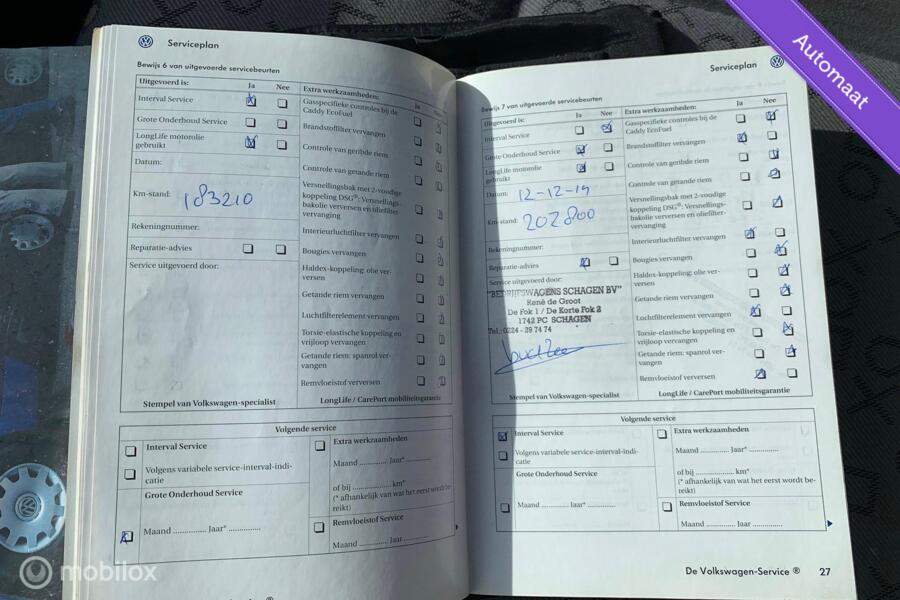 Automaat
Serviceplan
Bewijs 6 van uitgevoerde servicebeurten
Uitgevoerd is:
Ja
Nee
Interval Service
Grote Onderhoud Service
LongLife motorolie
gebruikt
Datum:
Km-stand: 183210
Rekeningnummer:
Reparatie-advies
Service uitgevoerd door:
Stempel van Volkswagen-specialist
Extra werkzaamheden:
Ja
Gasspecifieke controles bij de
Caddy EcoFuel
Brandstoffilter vervangen
Controle van geribde riem
Controle van getande riem
Versnellingsbak met 2-voudige
koppeling DSG®: Versnellings-
bakolie verversen en oliefilter-
vervanging
Interieurluchtfilter vervangen
Bougies vervangen
Haldex-koppeling: olie ver-
versen
Getande riem vervangen
Luchtfilterelement vervangen
Torsie-elastische koppeling en
vrijloop vervangen
Getande riem: spanrol ver-
vangen
Remvloeistof verversen
LongLife / CarePort mobiliteitsgarantie
Volgende service
Interval Service
Volgens variabele service-interval-indi-
catie
Grote Onderhoud Service
Maand ............ Jaar* ..............
Extra werkzaamheden
Maand ............ Jaar* ..............
of bij .................. km*
(* afhankelijk van wat het eerst wordt be-
reikt)
Remvloeistof Service
Maand ............ Jaar ..............
Serviceplan
Bewijs 7 van uitgevoerde servicebeurten
Uitgevoerd is:
Ja
Nee
Interval Service
Grote Onderhoud Service
LongLife motorolie
gebruikt
Datum: 12-12-19
Km-stand: 202800
Rekeningnummer:
Reparatie-advies
Service uitgevoerd door:
"BEDRIJFSWAGENS SCHAGEN BV"
René de Groot
De Fok 1 / De Korte Fok 2
1742 PC SCHAGEN
Tel.: 0224 - 29 74 74
Stempel van Volkswagen-specialist
Extra werkzaamheden:
Ja
Nee
Gasspecifieke controles bij de
Caddy EcoFuel
Brandstoffilter vervangen
Controle van geribde riem
Controle van getande riem
Versnellingsbak met 2-voudige
koppeling DSG®: Versnellings-
bakolie verversen en oliefilter-
vervanging
Interieurluchtfilter vervangen
Bougies vervangen
Haldex-koppeling: olie ver-
versen
Getande riem vervangen
Luchtfilterelement vervangen
Torsie-elastische koppeling en
vrijloop vervangen
Getande riem: spanrol ver-
vangen
Remvloeistof verversen
LongLife / CarePort mobiliteitsgarantie
Volgende service
Interval Service
Volgens variabele service-interval-indi-
catie
Grote Onderhoud Service
Maand ............ Jaar* ..............
Extra werkzaamheden
Maand ............ Jaar* ..............
of bij .................. km*
(* afhankelijk van wat het eerst wordt be-
reikt)
Remvloeistof Service
Maand ............ Jaar ..............
De Volkswagen-Service ® 27
mobilox